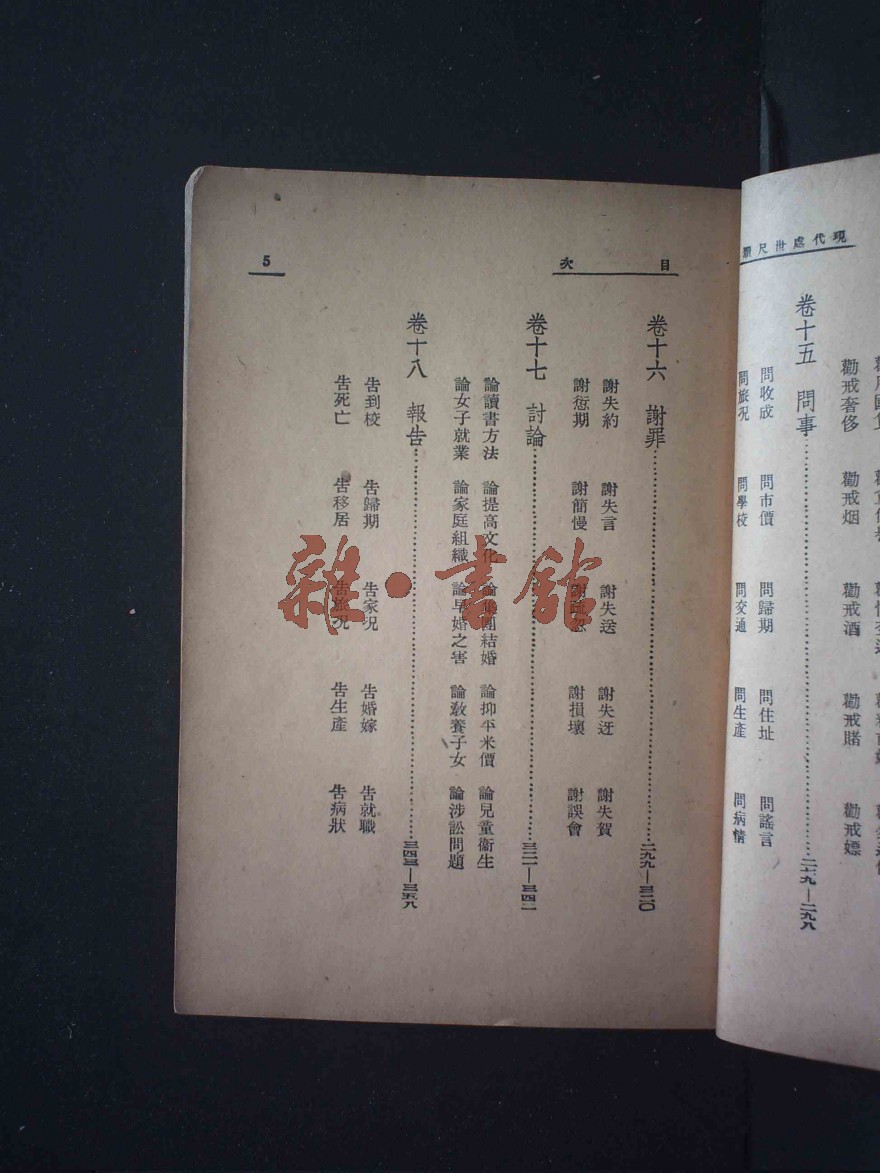 現代處世尺牘
勸戒奢侈 勸戒烟 勸戒酒 勸戒賭 勸戒嫖
卷十五 問事
問收成 問市價 問歸期 問住址 問謠言
問旅况 問學校 問交通 問生產 問病情
目次
5
卷十六 謝罪……二九九—三二〇
謝失約 謝失言 謝失送 謝失迓 謝失賀
謝愆期 謝簡慢 謝疏忽 謝損壞 謝誤會
卷十七 討論……三二一—三四二
論讀書方法 論提高文化 論集團結婚 論抑平米價 論兒童衞生
論女子就業 論家庭組織 論早婚之害 論敎養子女 論涉訟問題
卷十八 報告……三四三—三五八
告到校 告歸期 告家况 告婚嫁 告就職
告死亡 告移居 告旅况 告生產 告病狀
雜·書館